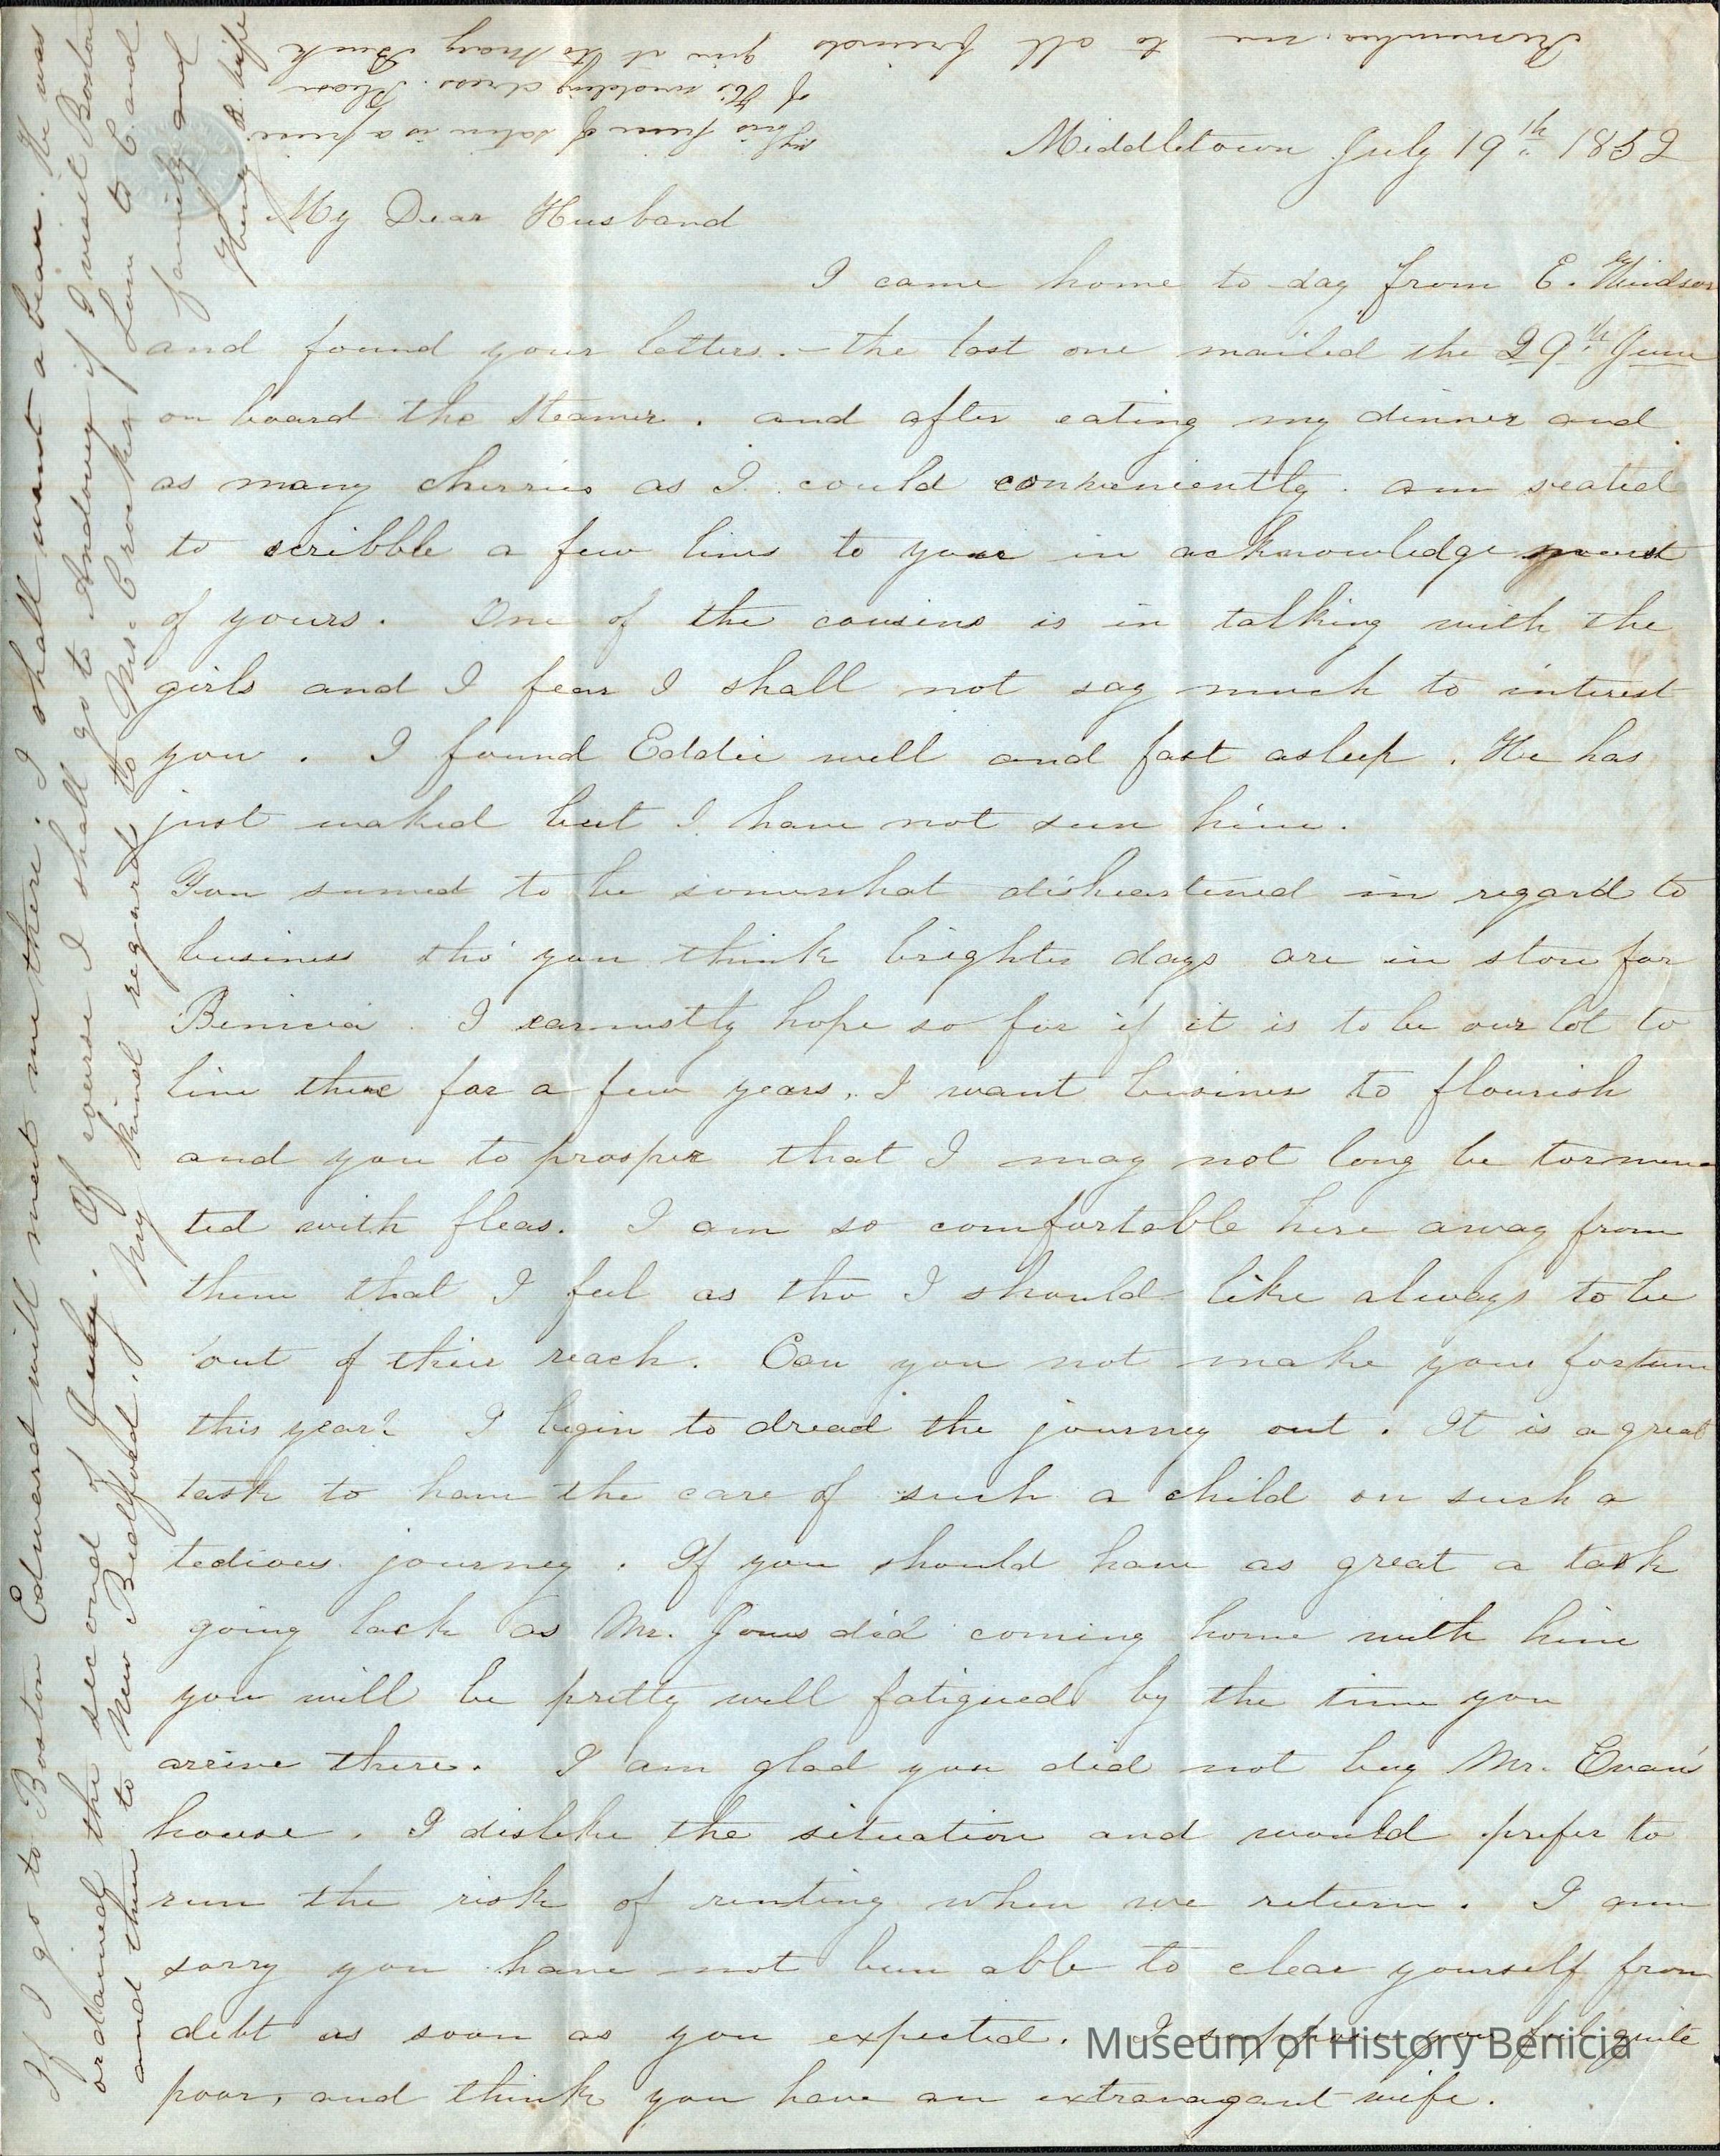 Middletown July 19th 1852
My Dear Husband
I came home to day from E. Windsor
and found your letters. - the last one mailed the 29th June
on board the steamer. and after eating my dinner and
as many cherries as I could conveniently. am seated
to scribble a few lines to your in acknowledgement
of yours. One of the cousins is in talking with the
girls and I fear I shall not say much to interest
you. I found Eddie well and fast asleep. He has
just waked but I have not seen him.
You seemed to be somewhat disheartened in regard to
business tho' you think brighter days are in store for
Benicia. I earnestly hope so for if it is to be our lot to
live there for a few years, I want business to flourish
and you to prosper that I may not long be tormen
ted with fleas. I am so comfortable here away from
them that I feel as tho I should like always to be
out of their reach. Can you not make your fortune
this year? I begin to dread the journey out. It is a great
task to have the care of such a child on such a
tedious journey. If you should have as great a task
going back as Mr. Jones did coming home with him
you will be pretty well fatigued by the time you
arrive there. I am glad you did not buy Mr. Evan's
house. I dislike the situation and would prefer to
run the risk of renting when we return. I am
sorry you have not been able to clear yourself from
debt as soon as you expected. I suppose you feel quite
poor, and think you have an extravagant wife.
If I go to Boston Edward will meet me there. I shall want a beau. He was
ordained the second of July. Of course I shall go to Andover if I visit Boston
and then to New Bedford. My kind regards to Mrs. Crocker Love to C. and
family and
Henry A. wife
Remember me to all friends
This piece of satin is a piece
of His wedding dress. Please
give it to Mary
Museum of History Benicia